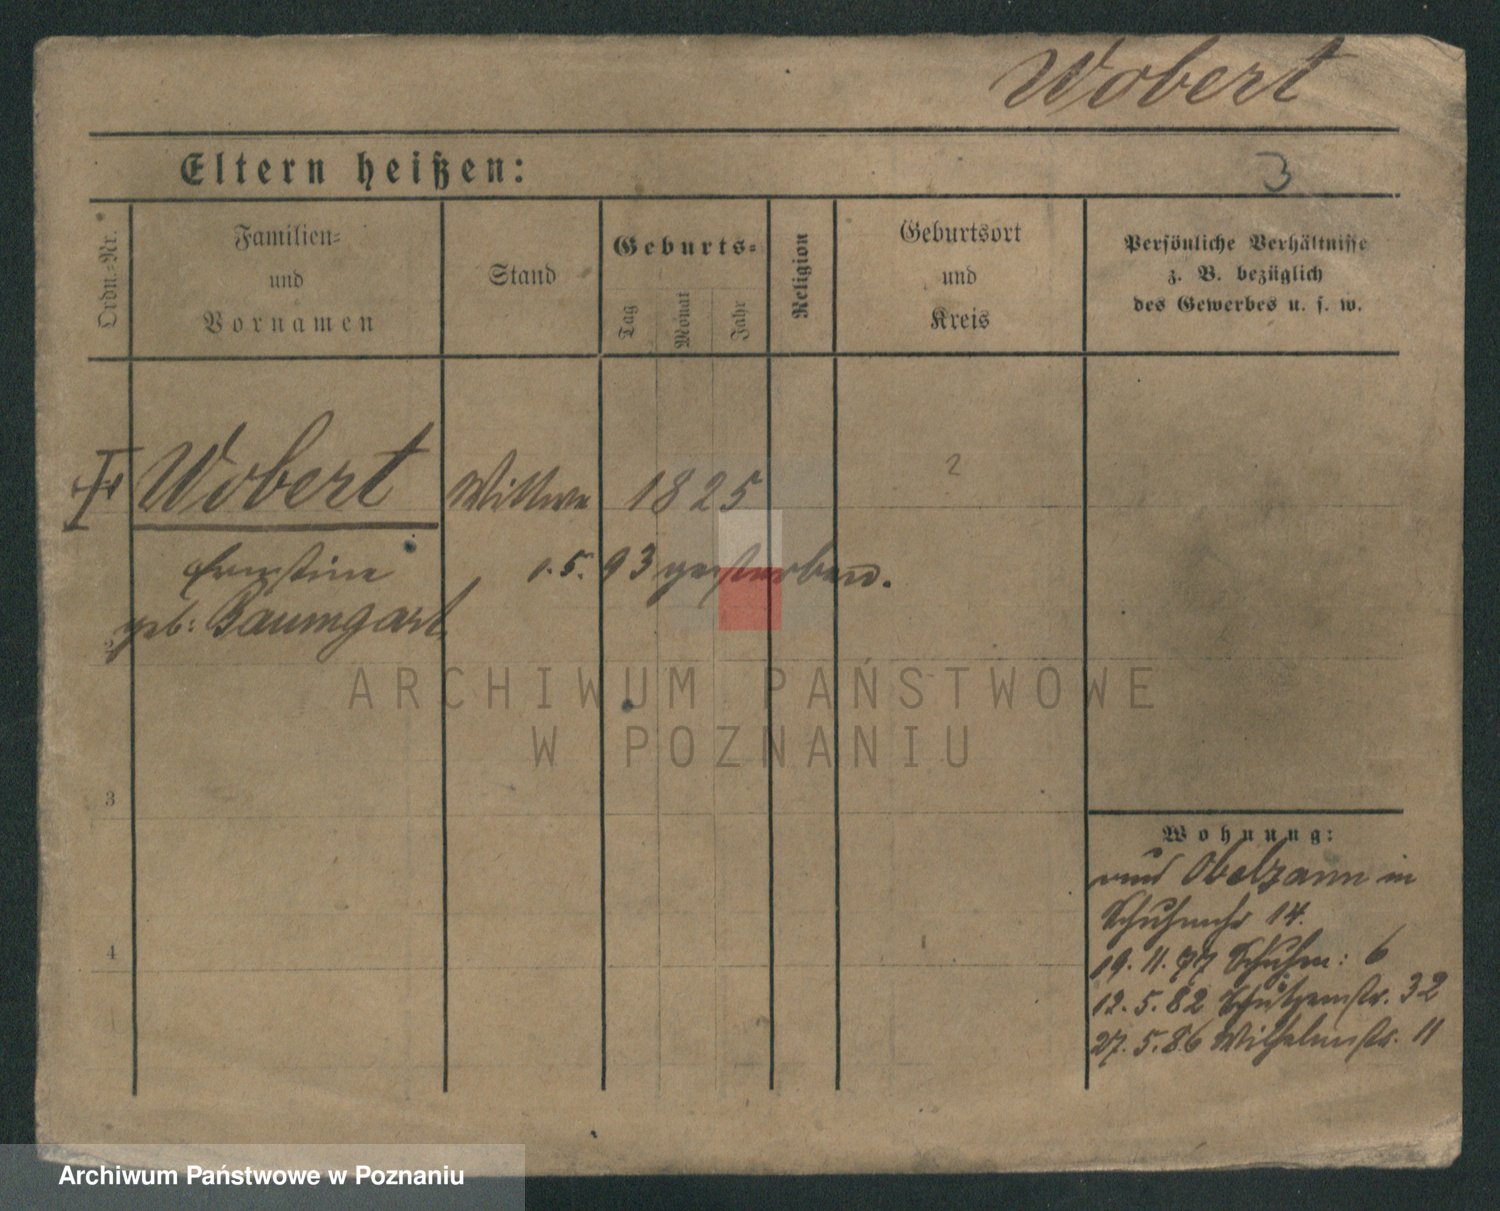 Wobert
Eltern heißen:
3
Ordn.-Nr.
Familien-
und
Vornamen
Stand
Geburts-
Tag
Monat
Jahr
Religion
Geburtsort
und
Kreis
Persönliche Verhältnisse
z. B. bezüglich
des Gewerbes u. s. w.
Wobert Wittwe 1825
Ernstine 1.5.93 gestorben.
geb: Baumgart
ARCHIWUM PAŃSTWOWE
W POZNANIU
3
Wohnung:
in
14.
4
19.11.77 Schuhm: 6
12.5.82 Schützenstr. 32
27.5.86 Wilhelmstr. 11
Archiwum Państwowe w Poznaniu